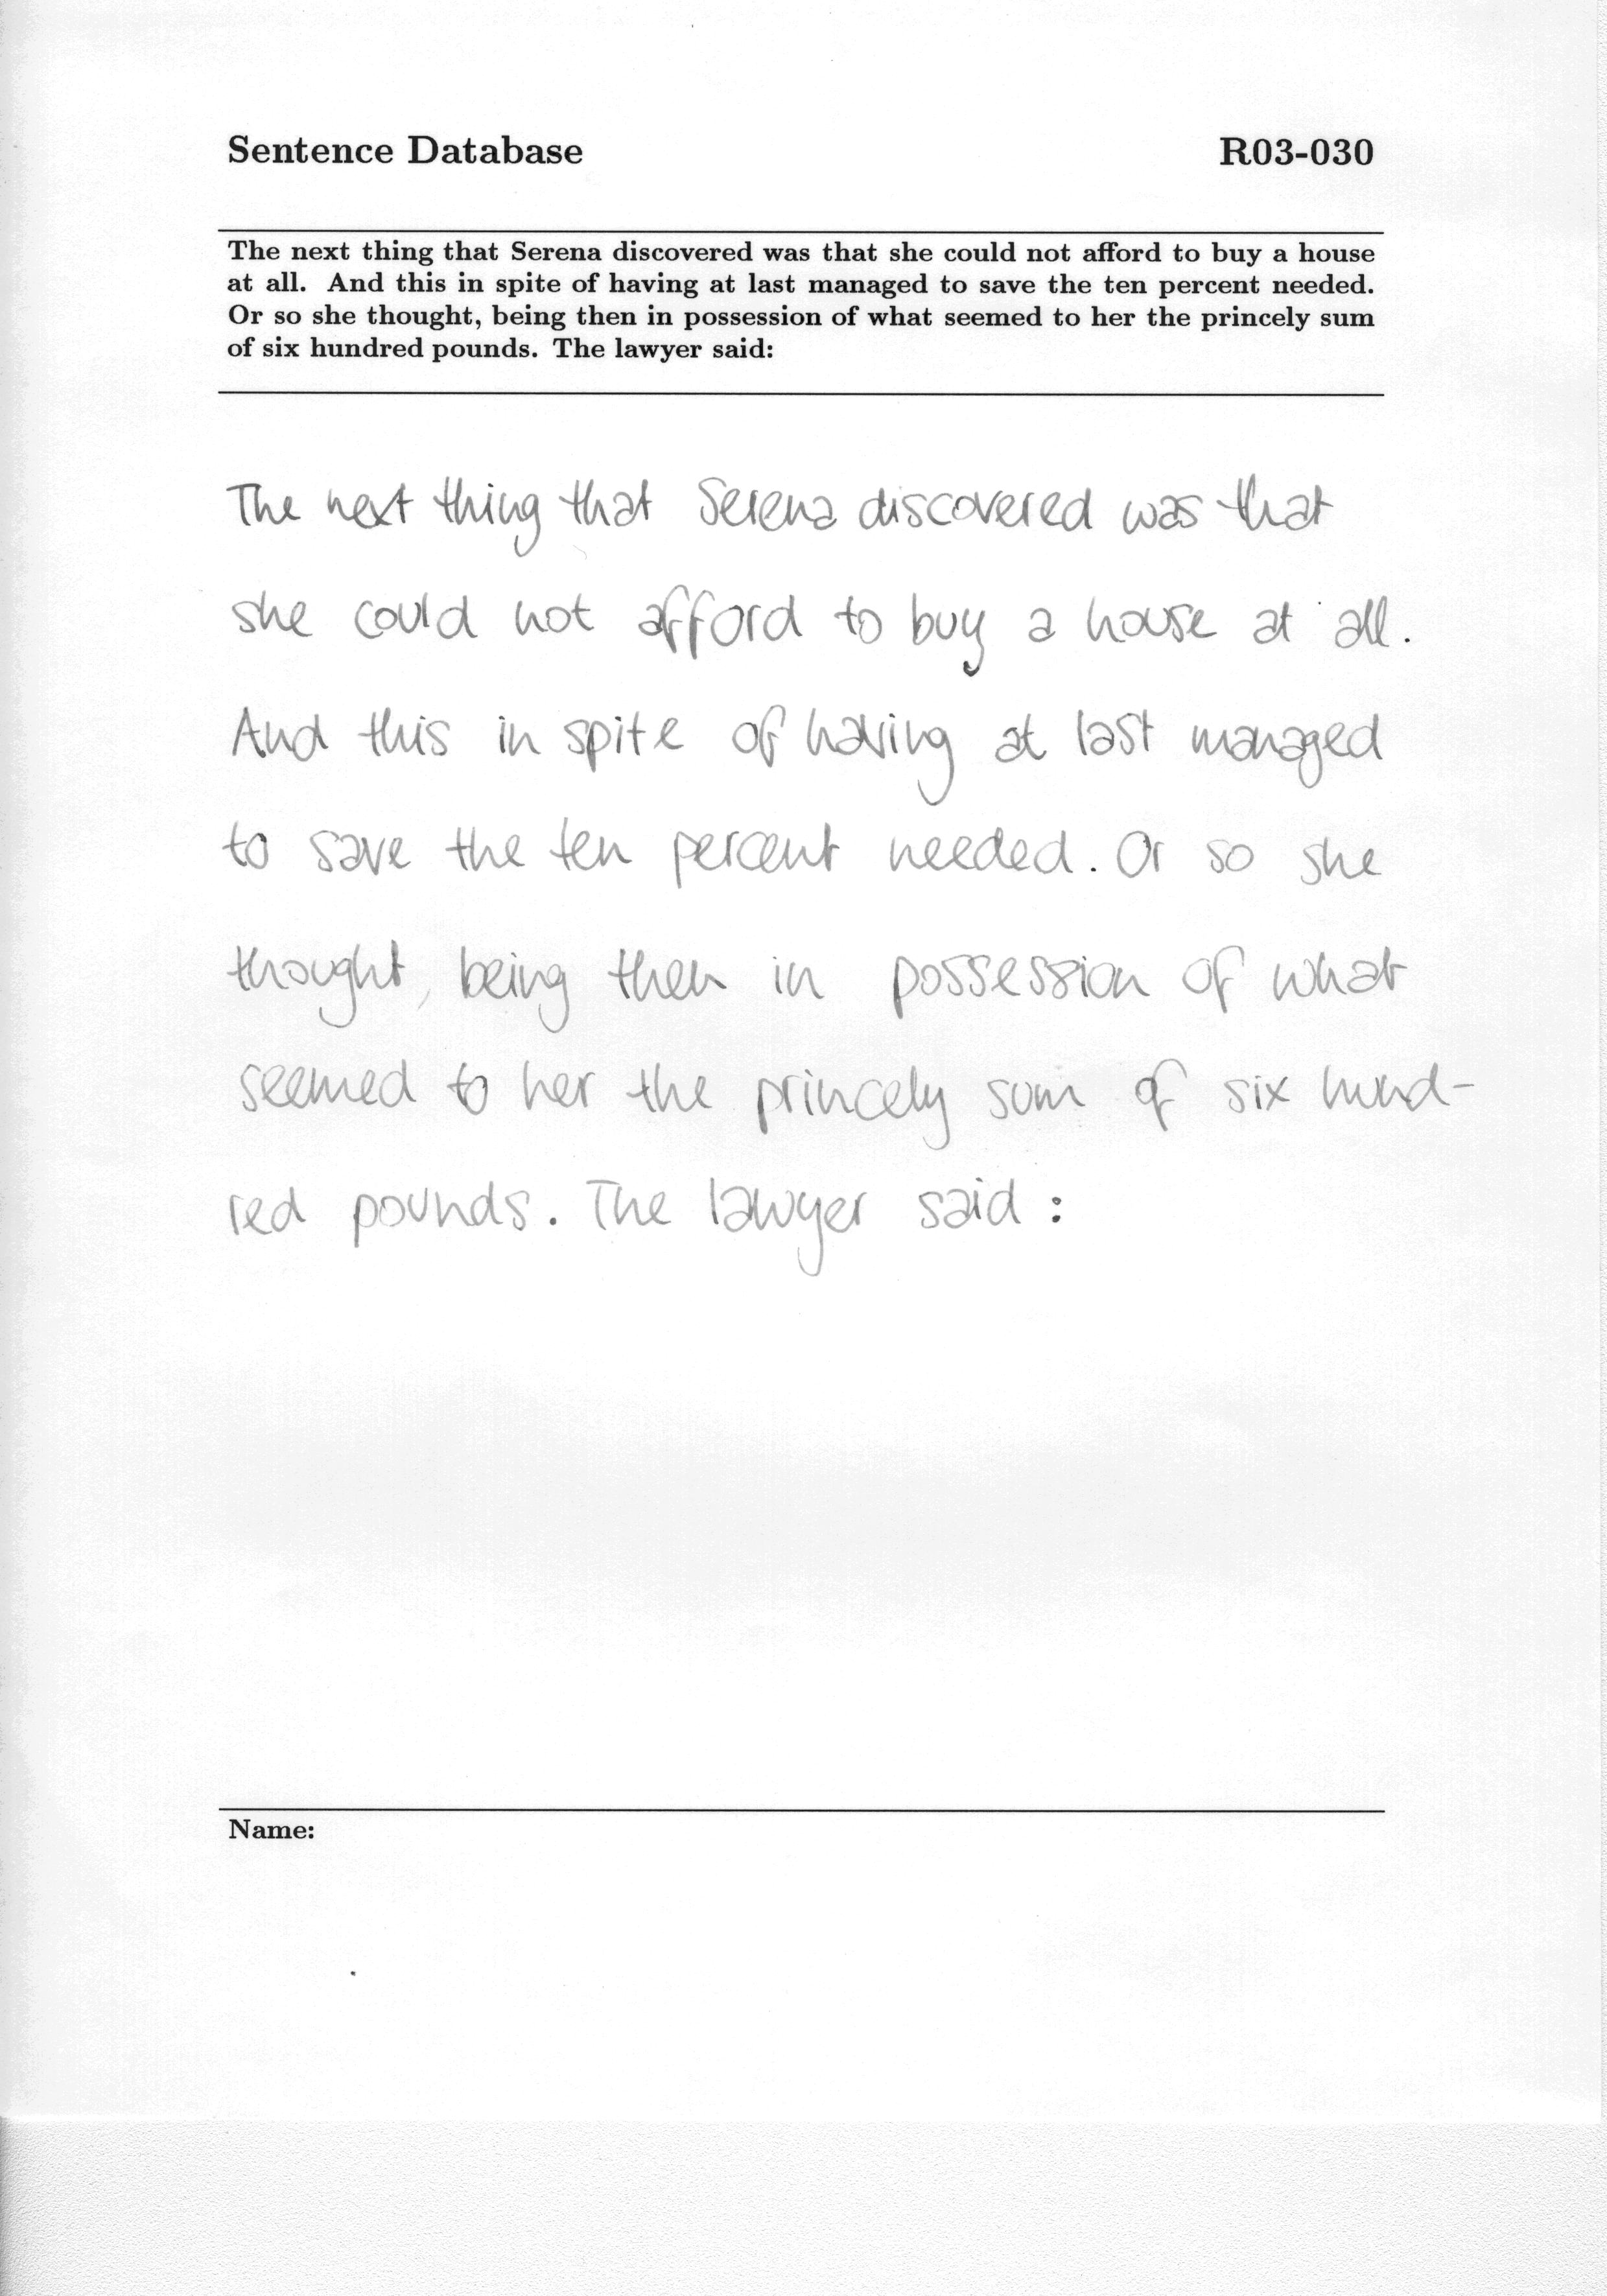 Sentence Database R03-030
The next thing that Serena discovered was that she could not afford to buy a house
at all. And this in spite of having at last managed to save the ten percent needed.
Or so she thought, being then in possession of what seemed to her the princely sum
of six hundred pounds. The lawyer said:
The next thing that Serena discovered was that
she could not afford to buy a house at all.
And this in spite of having at last managed
to save the ten percent needed. Or so she
thought, being then in possession of what
seemed to her the princely sum of six hund-
red pounds. The lawyer said:
Name: